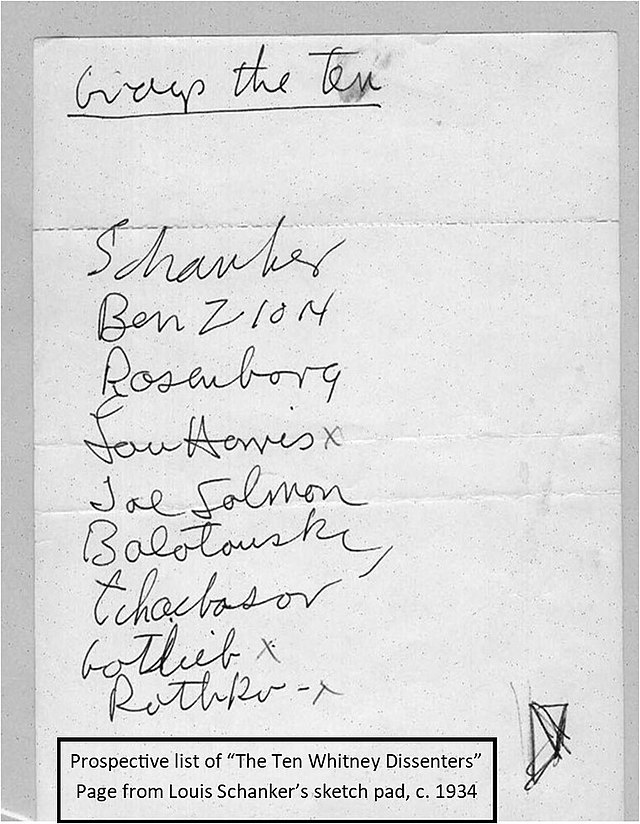 Group the Ten
Schanker
Ben Zion
Rosenborg
Lou Harris x
Joe Solmon
Bolotowsky
Tchacbasov
Gottlieb x
Rothko - x
Prospective list of “The Ten Whitney Dissenters”
Page from Louis Schanker’s sketch pad, c. 1934